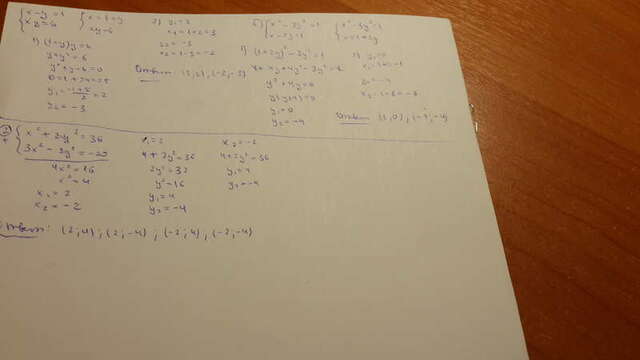 x-y=1
xy=6
x=1+y
xy=6
1) (1+y)y=6
y+y²=6
y²+y-6=0
D=1+24=25
y₁=(-1+5)/2=2
y₂=-3
2) y₁=2
x₁=1+2=3
y₂=-3
x₂=1-3=-2
Ответ: (3;2), (-2;-3)
б) x²-3y²=1
x-2y=1
x²-3y²=1
x=1+2y
1) (1+2y)²-3y²=1
1+4y+4y²-3y²=1
y²+4y=0
y(y+4)=0
y₁=0
y₂=-4
Ответ: (1;0),
x²+2y²=36
3x²-2y²=-20
4x²=16
x²=4
x₁=2
x₂=-2
x₁=2
4+2y²=36
2y²=32
y²=16
y₁=4
y₂=-4
x₂=-2
4+2y²=36
y₁=4
y₂=-4
Ответ: (2;4); (2;-4); (-2;4); (-2;-4)